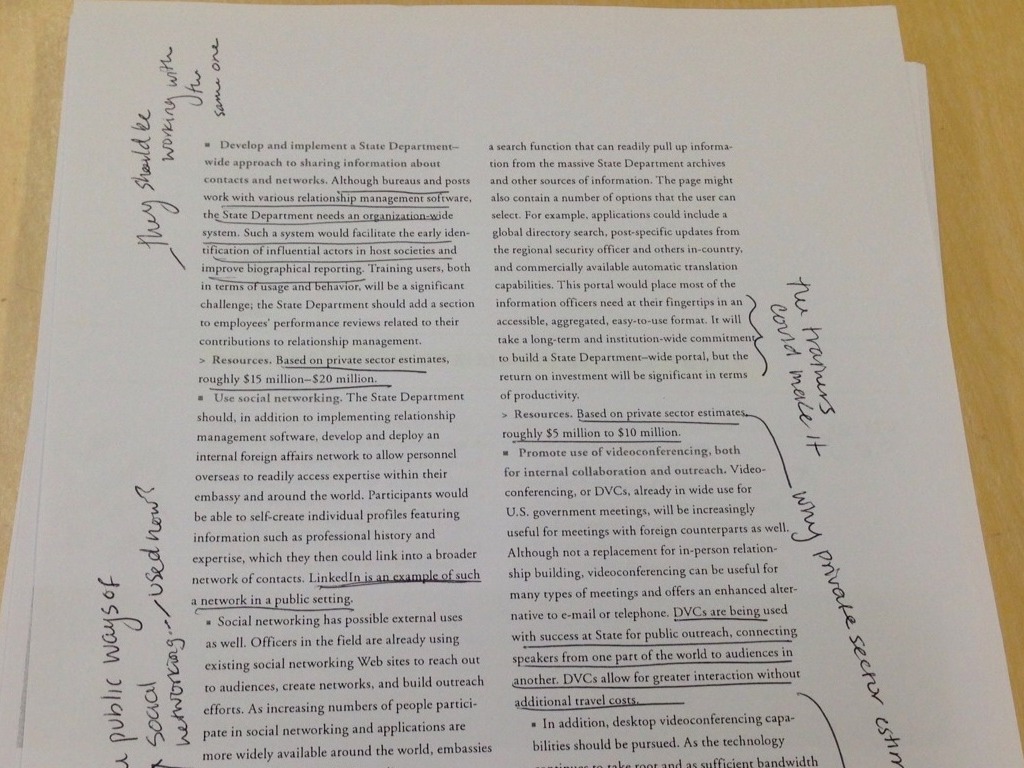 they should be
working with
the
same one
▪ Develop and implement a State Department–
wide approach to sharing information about
contacts and networks. Although bureaus and posts
work with various relationship management software,
the State Department needs an organization-wide
system. Such a system would facilitate the early iden-
tification of influential actors in host societies and
improve biographical reporting. Training users, both
in terms of usage and behavior, will be a significant
challenge; the State Department should add a section
to employees' performance reviews related to their
contributions to relationship management.
> Resources. Based on private sector estimates,
roughly $15 million–$20 million.
▪ Use social networking. The State Department
should, in addition to implementing relationship
management software, develop and deploy an
internal foreign affairs network to allow personnel
overseas to readily access expertise within their
embassy and around the world. Participants would
be able to self-create individual profiles featuring
information such as professional history and
expertise, which they then could link into a broader
network of contacts. LinkedIn is an example of such
a network in a public setting.
▪ Social networking has possible external uses
as well. Officers in the field are already using
existing social networking Web sites to reach out
to audiences, create networks, and build outreach
efforts. As increasing numbers of people partici-
pate in social networking and applications are
more widely available around the world, embassies
public ways of
social
networking used now?
a search function that can readily pull up informa-
tion from the massive State Department archives
and other sources of information. The page might
also contain a number of options that the user can
select. For example, applications could include a
global directory search, post-specific updates from
the regional security officer and others in-country,
and commercially available automatic translation
capabilities. This portal would place most of the
information officers need at their fingertips in an
accessible, aggregated, easy-to-use format. It will
take a long-term and institution-wide commitment
to build a State Department–wide portal, but the
return on investment will be significant in terms
of productivity.
> Resources. Based on private sector estimates,
roughly $5 million to $10 million.
▪ Promote use of videoconferencing, both
for internal collaboration and outreach. Video-
conferencing, or DVCs, already in wide use for
U.S. government meetings, will be increasingly
useful for meetings with foreign counterparts as well.
Although not a replacement for in-person relation-
ship building, videoconferencing can be useful for
many types of meetings and offers an enhanced alter-
native to e-mail or telephone. DVCs are being used
with success at State for public outreach, connecting
speakers from one part of the world to audiences in
another. DVCs allow for greater interaction without
additional travel costs.
▪ In addition, desktop videoconferencing capa-
bilities should be pursued. As the technology
continues to take root and as sufficient bandwidth
the trainers
could make it
why private sector estim